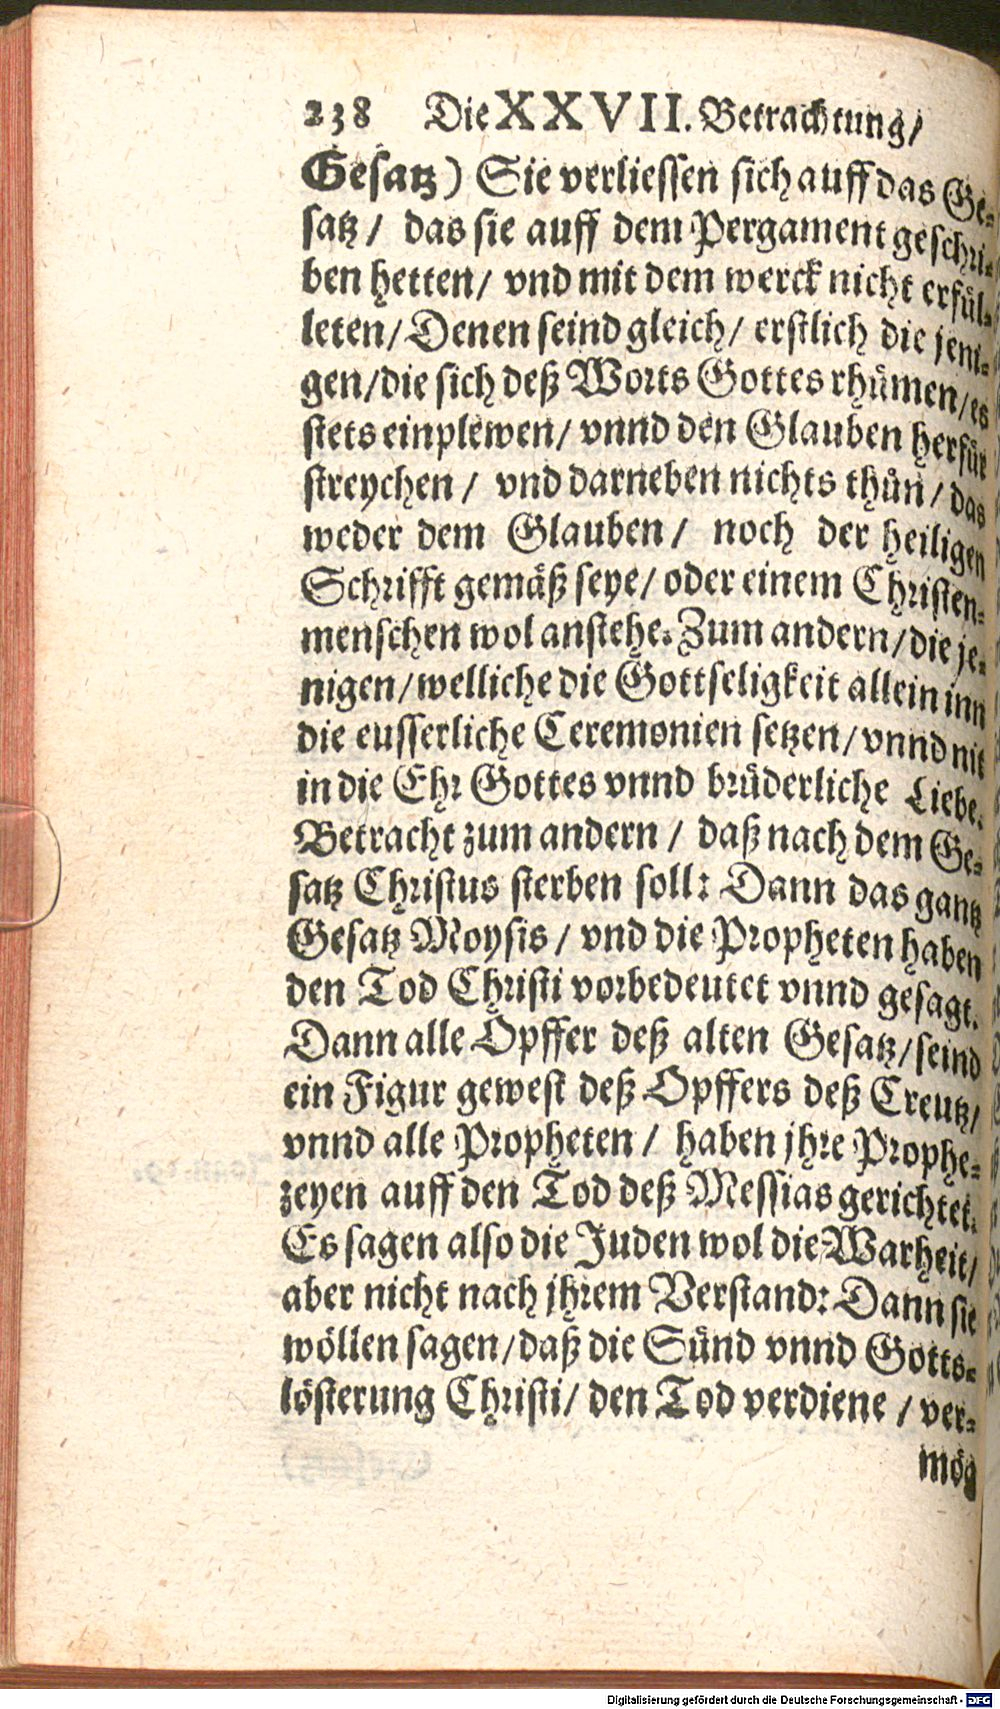 238 Die XXVII. Betrachtung/
Gesatz) Sie verliessen sich auff das Ge-
satz / das sie auff dem Pergament geschri-
ben hetten/ vnd mit dem werck nicht erfül-
leten/ Denen seind gleich/ erstlich die jeni-
gen/die sich deß Worts Gottes rhümen/es
stets einplewen/ vnnd den Glauben herfür
streychen / vnd darneben nichts thůn/ das
weder dem Glauben/ noch der heiligen
Schrifft gemäß seye/ oder einem Christen-
menschen wol anstehe. Zum andern/die je-
nigen/welliche die Gottseligkeit allein inn
die eusserliche Ceremonien setzen/vnnd nit
in die Ehr Gottes vnnd brüderliche Liebe.
Betracht zum andern / daß nach dem Ge-
satz Christus sterben soll: Dann das gantz
Gesatz Moysis / vnd die Propheten haben
den Tod Christi vorbedeutet vnnd gesagt.
Dann alle Opffer deß alten Gesatz/seind
ein Figur gewest deß Opffers deß Creutz/
vnnd alle Propheten / haben jhre Prophe-
zeyen auff den Tod deß Messias gerichtet.
Es sagen also die Juden wol die Warheit/
aber nicht nach jhrem Verstand: Dann sie
wöllen sagen/daß die Sünd vnnd Gotts-
lösterung Christi/ den Tod verdiene / ver-
mög
Digitalisierung gefördert durch die Deutsche Forschungsgemeinschaft - DFG